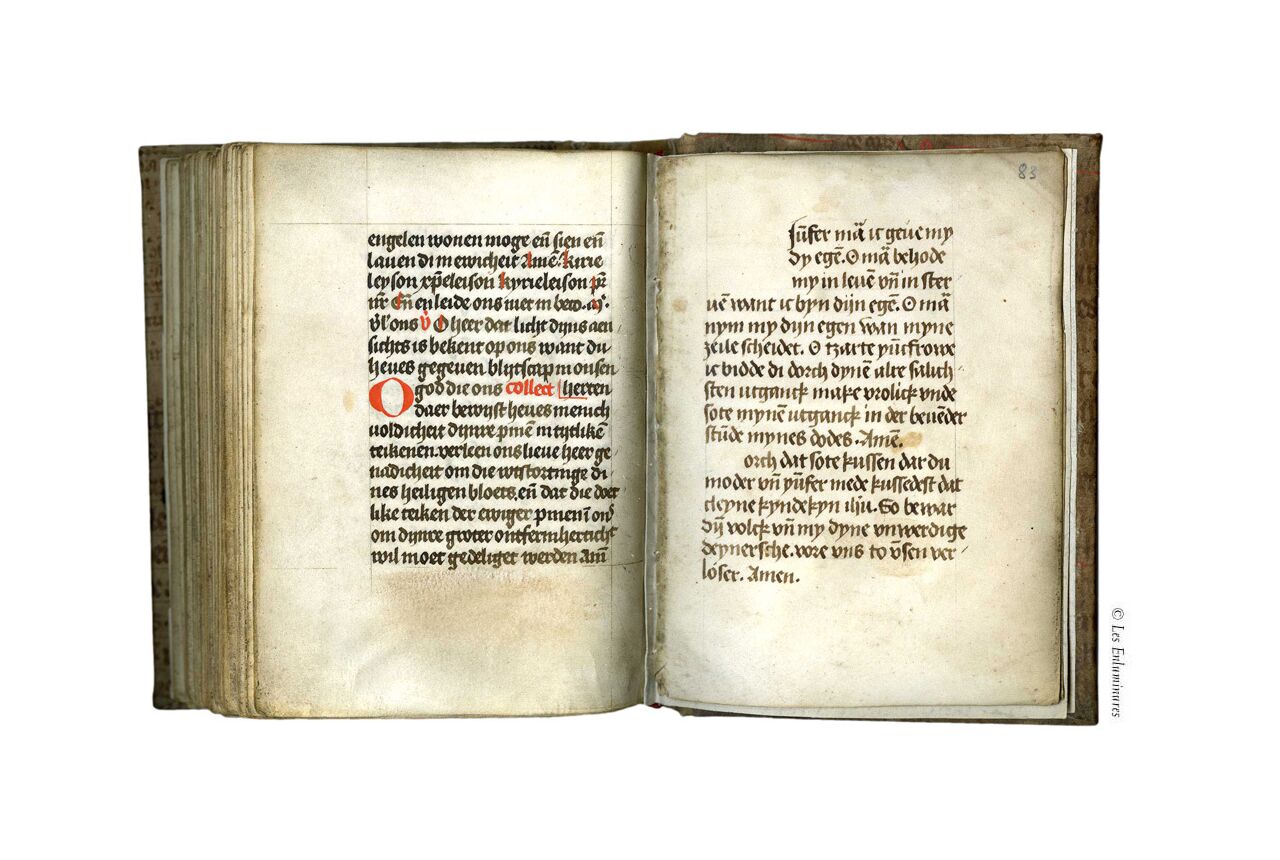 engelen wonen moge en̄ sien en̄
lauen di in ewicheit Amē. kirie
leyson xp̄eleison kyrieleison pr̄
nr̄ En̄ en leide ons niet in beco
v̄l ons v̄ O heer dat licht dijns aen
sichts is bekent op ons want du
heues gegeuen blijtscap in onsen
O god die ons collect herten
daer bewijst heues menich
uoldicheit dijnre pinen̄ in tijtlikē
teikenen. verleen ons lieue heer ge
nadicheit om die wtstortinge di
nes heiligen bloets. en̄ dat die doet
like teiken der ewiger pinen in ons
om dijnre groter ontfermherticht
wil moet gedeliget werden am̄
83
Jūfer mā ic geue my
dy egē. O mā behode
my in leuē vn̄ in ster
uē want ic byn dijn egē. O mā
nym my dyn egen wan myne
zeile scheidet. O tzarte yūcfrowe
ic bidde di dorch dynē alte salich
sten utganck make vrolick vnde
sote mynē utganck in der beuēder
stūde mynes dodes. Amē.
orch dat sote kussen dat du
moder vn̄ yūfer mede kussedest dat
cleyne kyndekyn ihū. So bewar
dij volck vn̄ my dyne vnwerdige
deynersche. vore vns to vsen ver
loser. Amen.
© Les Enluminures